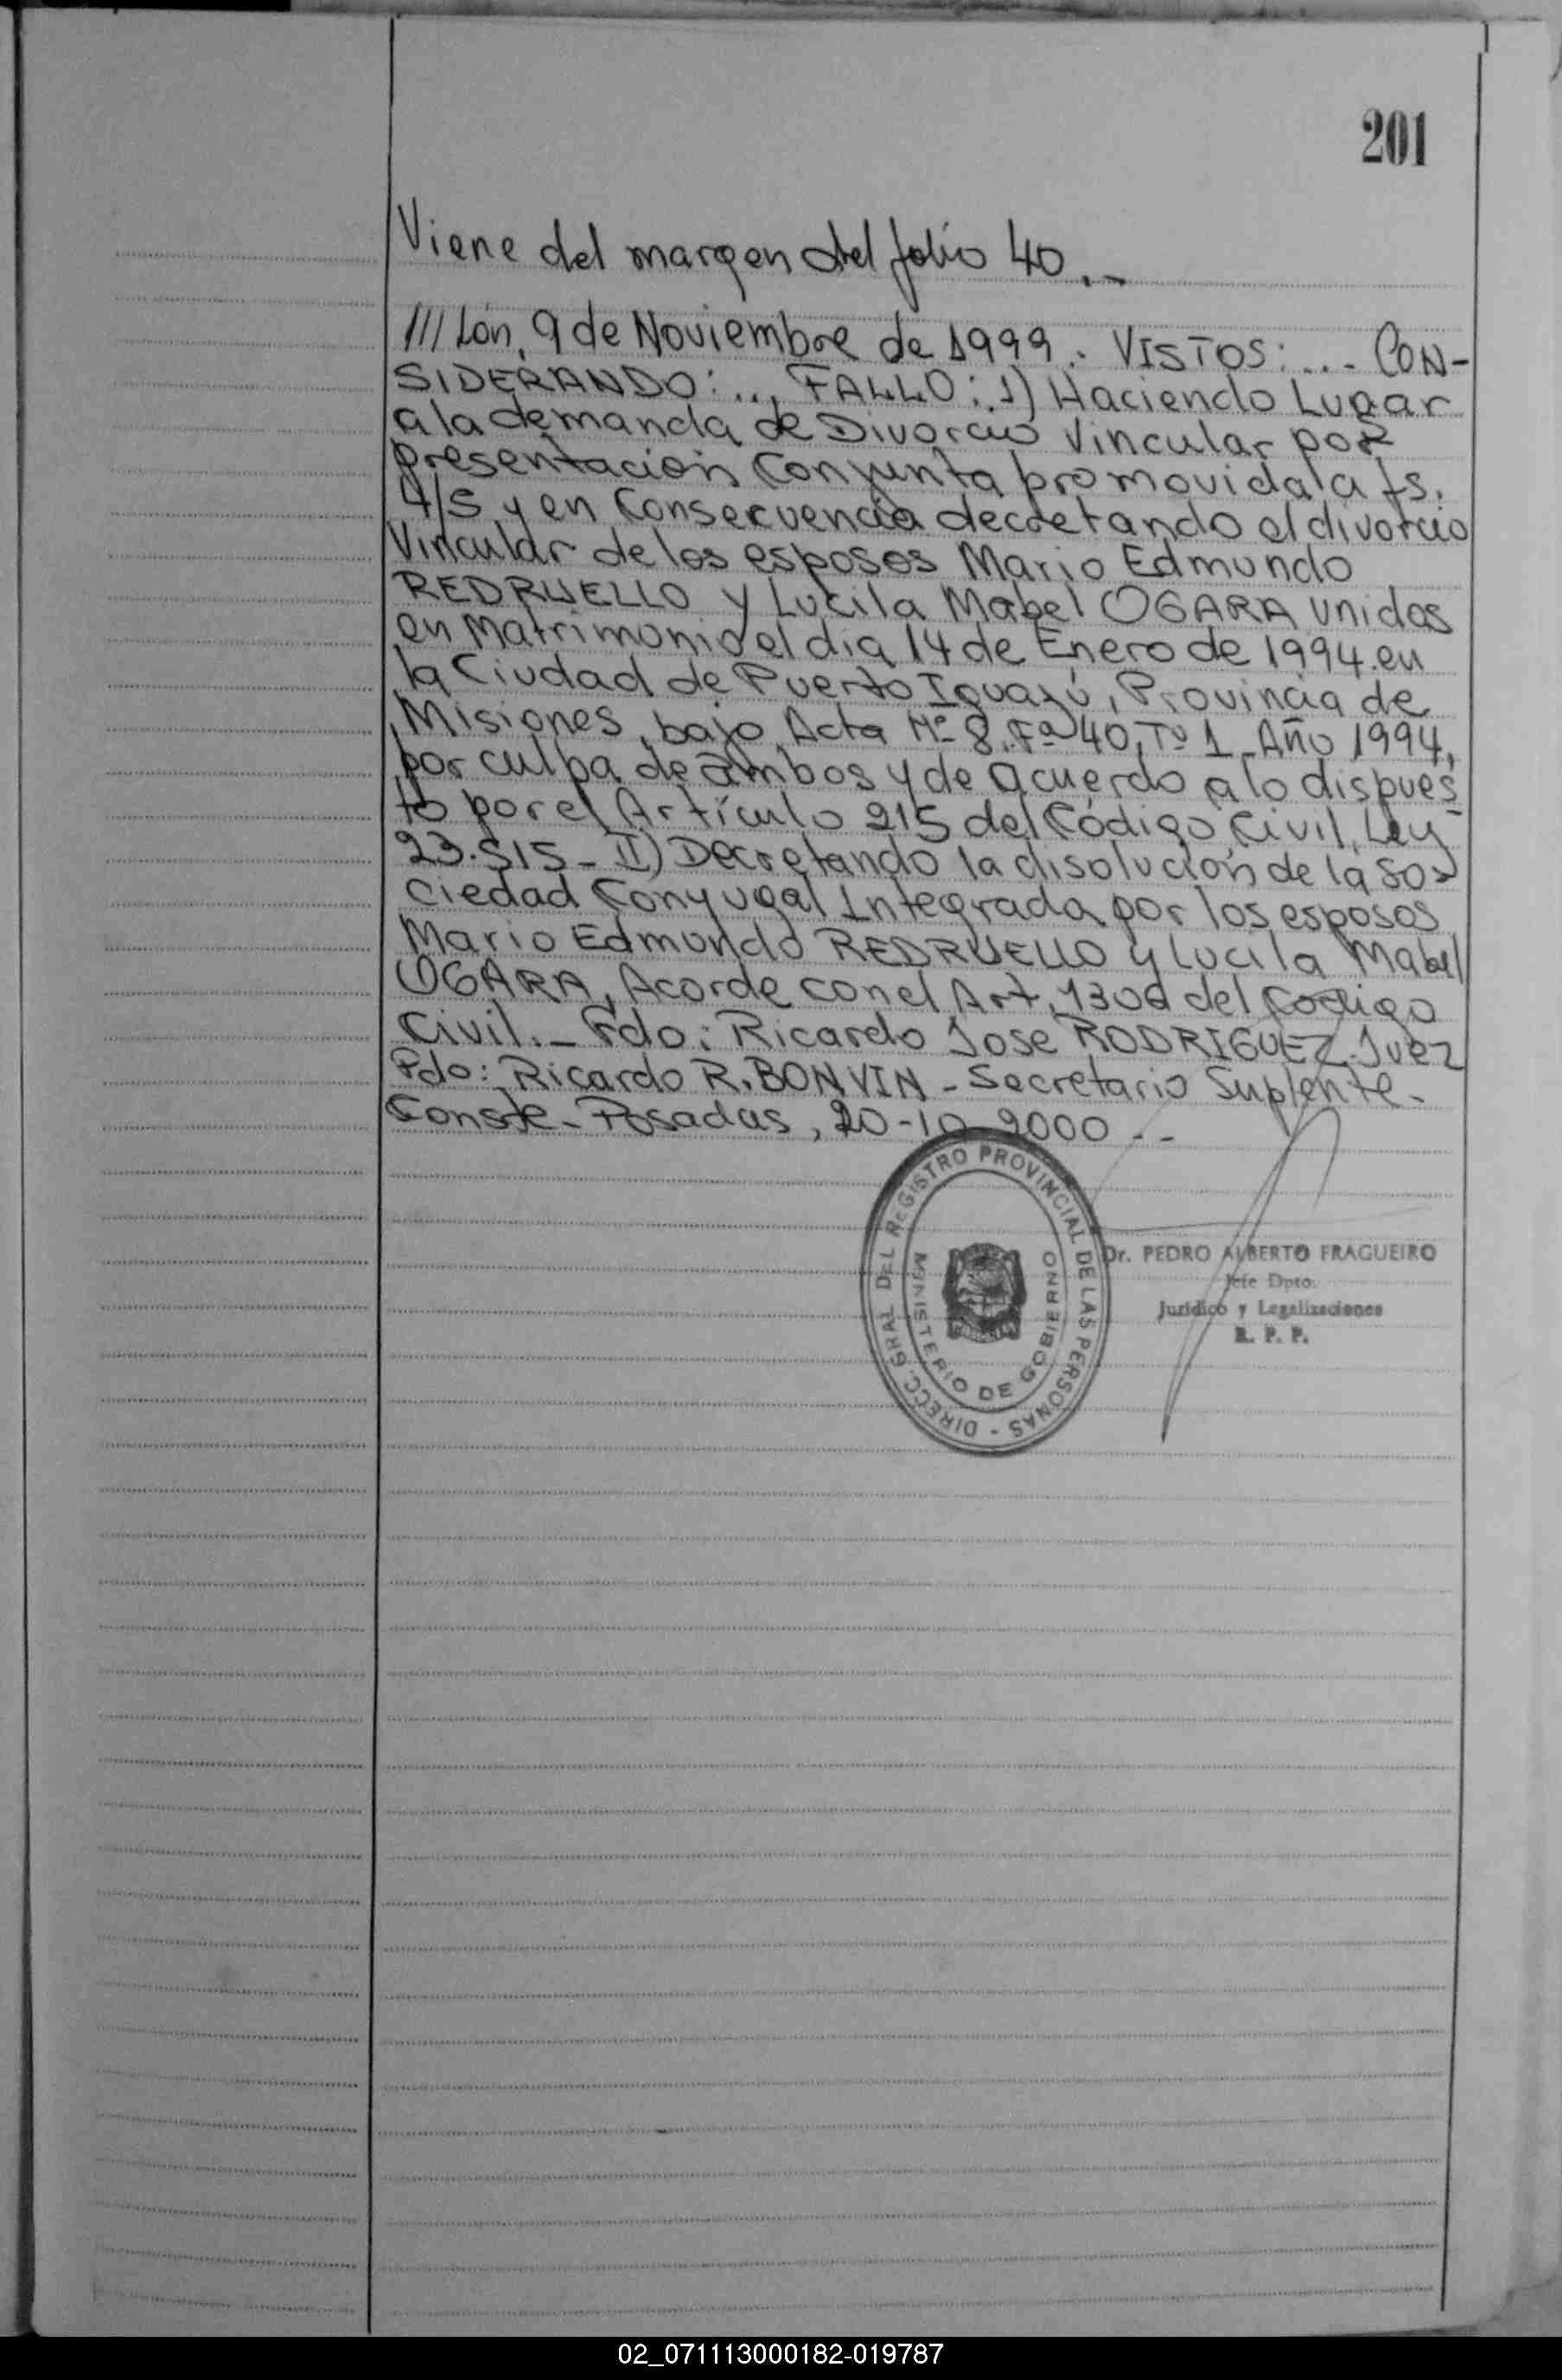 201
Viene del margen del folio 40.-
/// Lón, 9 de Noviembre de 1999. VISTOS: ... CON-
SIDERANDO: ... FALLO: 1) Haciendo Lugar
a la demanda de Divorcio Vincular por
presentación Conjunta promovida a fs.
4/5 y en Consecuencia decretando el divorcio
Vincular de los esposos Mario Edmundo
REDRUELLO y Lucila Mabel OGARA unidos
en Matrimonio el dia 14 de Enero de 1994. en
la Ciudad de Puerto Iguazú, Provincia de
Misiones, bajo Acta Nº 8. Fº 40, Tº 1 - Año 1994,
por culpa de ambos y de acuerdo a lo dispues-
to por el Artículo 215 del Código Civil, Ley
23.515 - II) Decretando la disolución de la So-
ciedad Conyugal Integrada por los esposos
Mario Edmundo REDRUELLO y Lucila Mabel
OGARA, Acorde con el Art. 1306 del Codigo
Civil. - Fdo: Ricardo Jose RODRIGUEZ. Juez
Fdo: Ricardo R. BONVIN - Secretario Suplente -
Conste - Posadas, 20-10-2000 --
DIRECC. GRAL DEL REGISTRO PROVINCIAL DE LAS PERSONAS -
MINISTERIO DE GOBIERNO
Dr. PEDRO ALBERTO FRAGUEIRO
Jefe Dpto.
Jurídico y Legalizaciones
R. P. P.
02_071113000182-019787